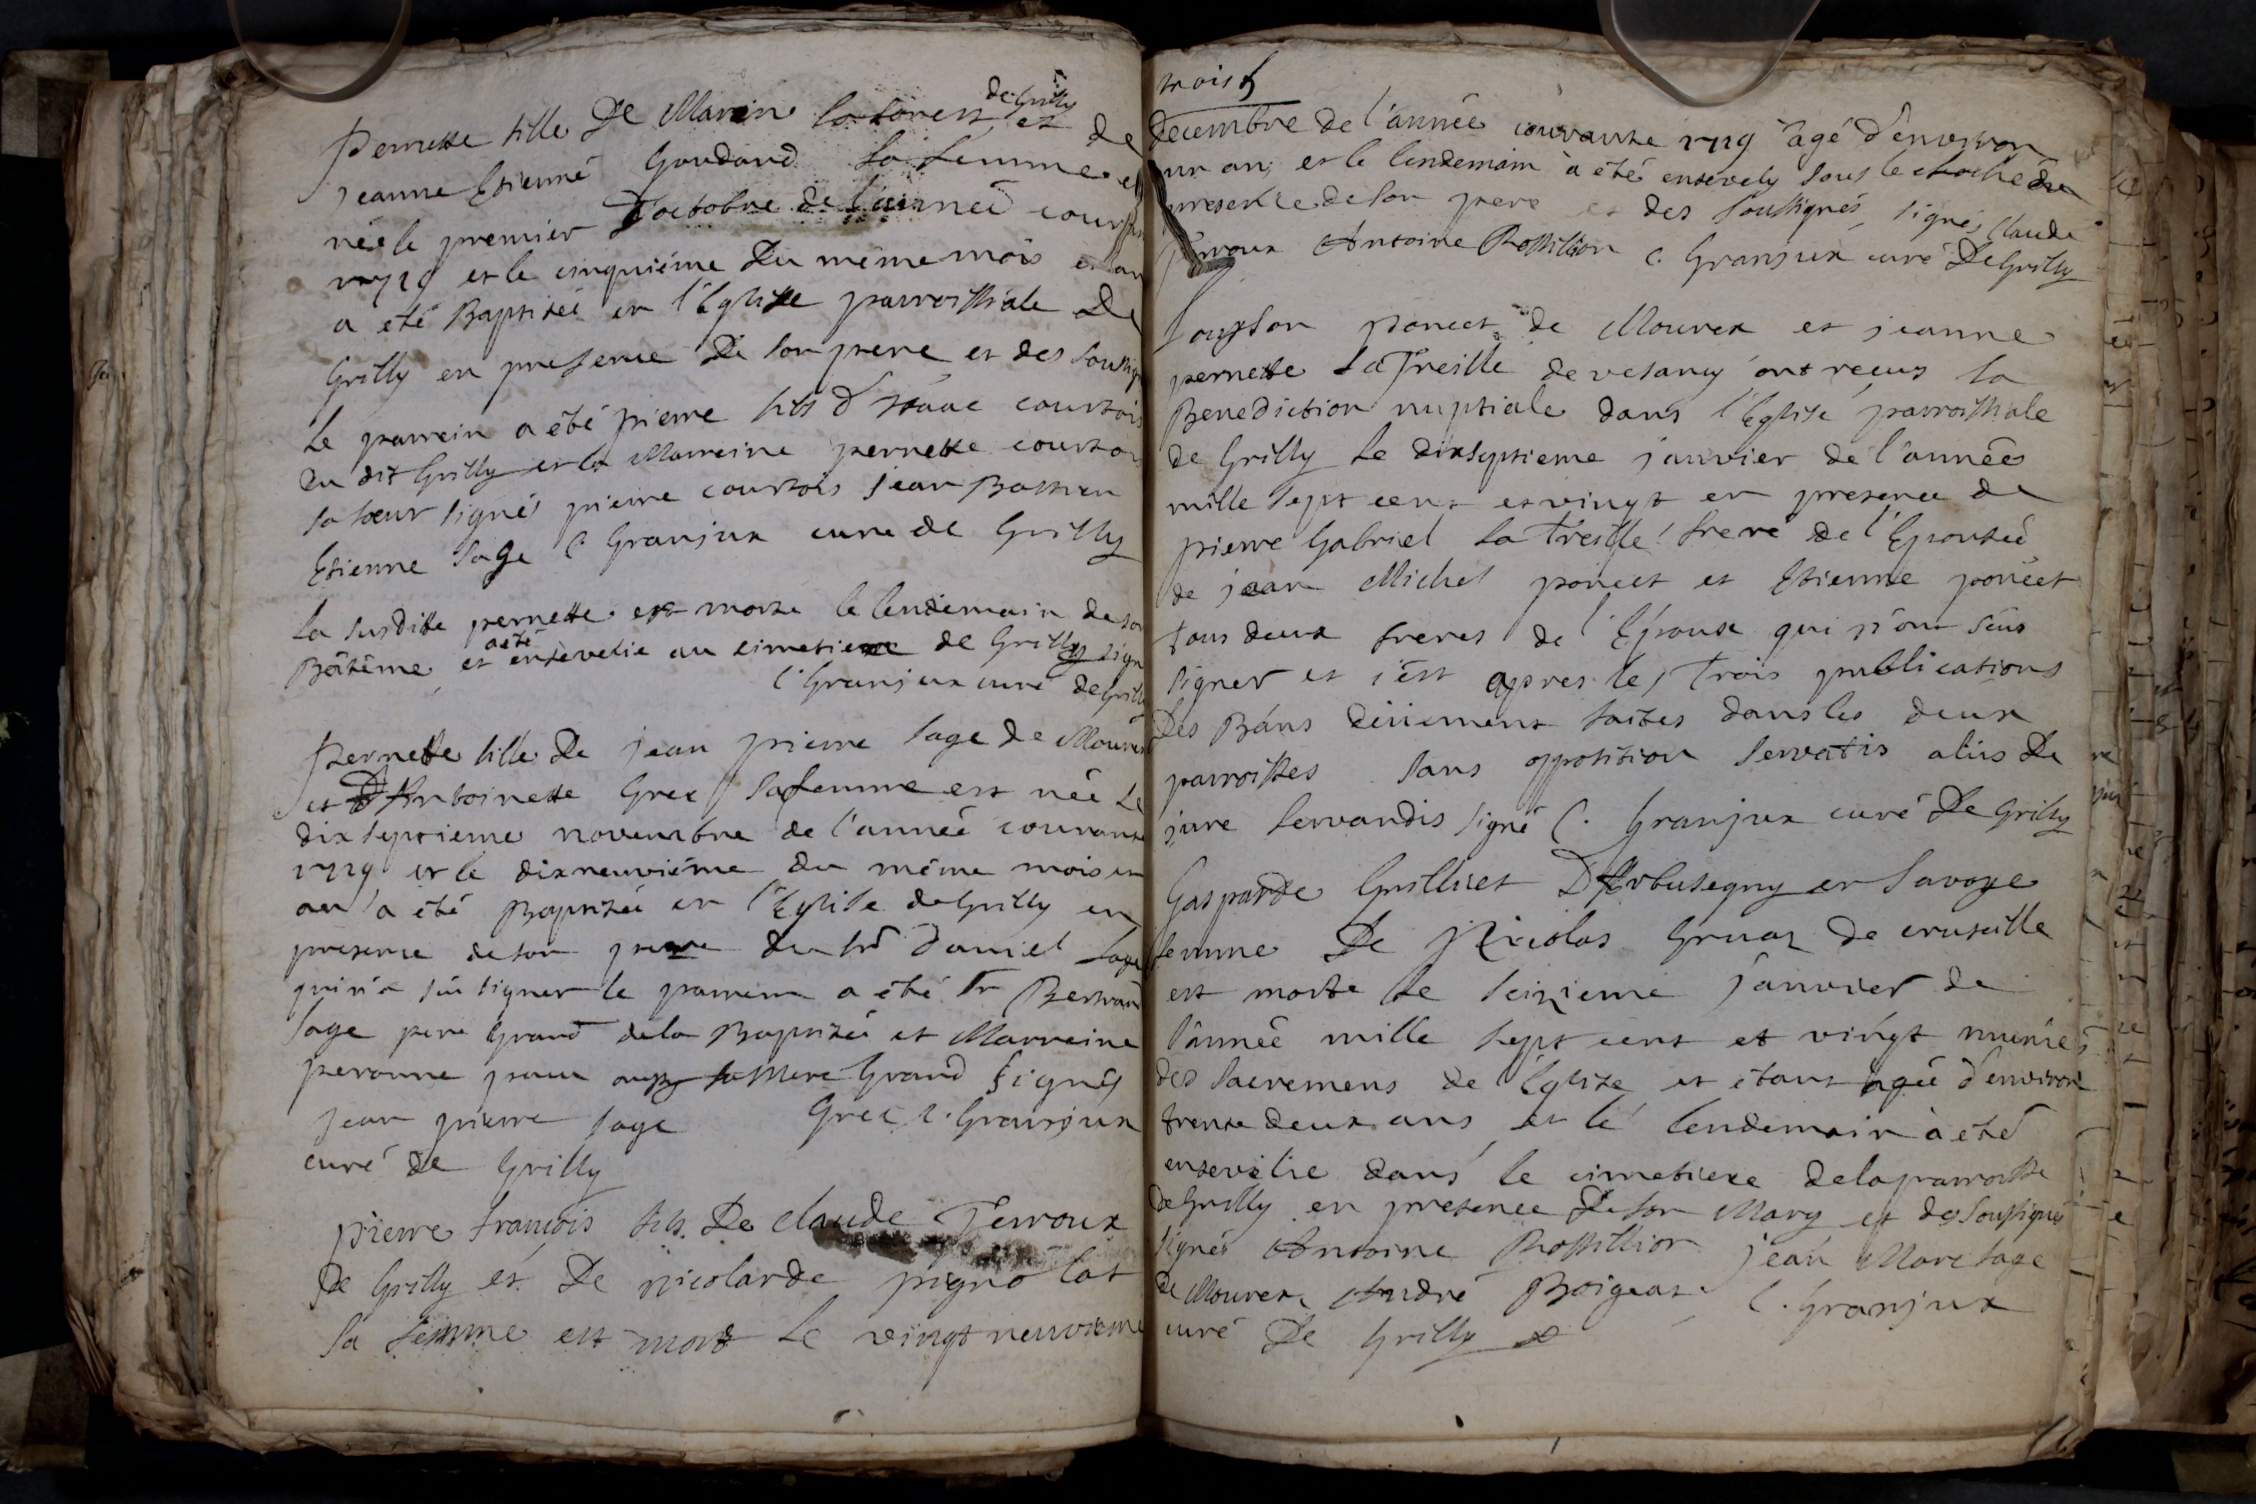 Pernette fille De Marin laforest de Grilly et de
jeanne Etienne Goudard sa femme est
née le premier D'octobre de l'année courante
1719 et le cinquiéme Du même mois et an
a eté Baptisée en l'Eglise parroissiale De
Grilly en presence De son pere et des soussignés
le parrein a été pierre fils d'isaac courtois
du dit Grilly et la Marreine pernette courtois
sa sœur signés pierre courtois jean Bastien
Etienne sage C. Granjux curé de Grilly
la susditte pernette est morte le lendemain de son
Bâtême et a eté ensevelie au cimetiere de Grilly signé
C. Granjux curé de Grilly
Pernette fille De jean pierre sage de Mourex
et D'Antoinette Grex sa femme est née le
dixseptieme novembre de l'année courante
1719 et le dixneuviéme du même mois et
an a été Baptisée en l'Eglise de Grilly en
presence de son pere du sr daniel sage
qui n'a sû signer le parrein a été sr Bertrand
sage pere Grand de la Baptisée et Marreine
peronne sa Mere Grand signés
jean pierre sage Grex C. Granjux
curé de Grilly
pierre françois fils De claude Perroux
De Grilly et De nicolarde pignolat
sa femme est mort le vingt neuvieme
trois
Decembre de l'année courante 1719 âgé d'environ
un an et le lendemain à été ensevely sous le cloché en
presence de son pere et des soussignés signés Claude
Perroux Antoine Rossillion C. Granjux curé De Grilly
poncet de Mourex et jeanne
pernette La Treille de vesancy ont reçus la
Benediction nuptiale dans l'Eglise parroissiale
de Grilly le dixseptieme janvier de l'année
mille sept cent et vingt en presence de
pierre Gabriel la Treille frere de l'Epousée
de jean Michel poncet et Etienne poncet
tous deux freres de l'Epoux qui n'ont sçus
signer et c'est apres les trois publications
des Bans dûement faites dans les deux
parroisses sans opposition servatis aliis de
jure servandis signé C. Granjux curé De Grilly
Gasparde Grilliet D'Arbusegny en Savoye
femme De Nicolas Gruaz de cruseille
est morte le seizieme janvier de
l'année mille sept cent et vingt muniés
des sacremens de l'Eglise et étant agée d'environ
trente deux ans et le lendemain à eté
ensevelie dans le cimetiere de la parroisse
de Grilly en presence De son Mary et des soussignés
signés Antoine Rossillion jean Marc sage
de Mourex André Boigeat C. Granjux
curé De Grilly